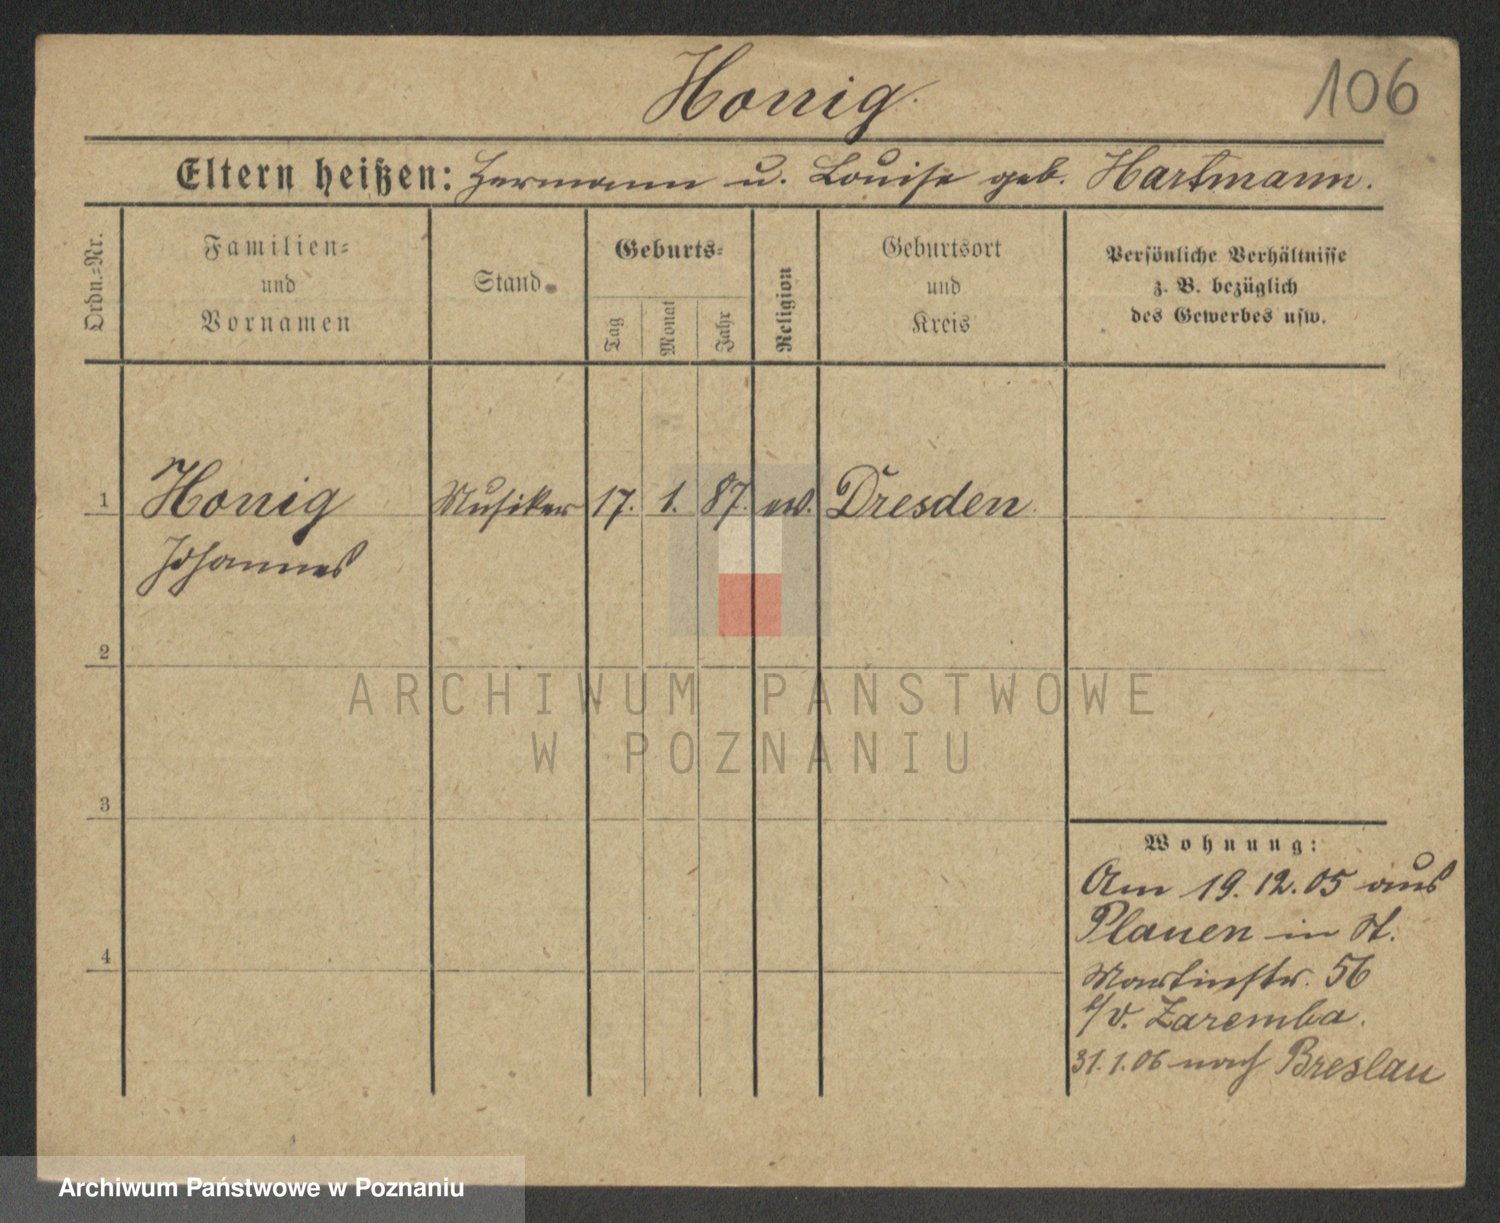 Honig.
106
Eltern heißen: Hermann u. Louise geb. Hartmann.
Ordn.-Nr.
Familien-
und
Vornamen
Stand
Geburts-
Tag
Monat
Jahr
Religion
Geburtsort
und
Kreis
Persönliche Verhältnisse
z. B. bezüglich
des Gewerbes usw.
1 Honig Musiker 17. 1. 87. ev. Dresden
Johannes
2
ARCHIWUM PAŃSTWOWE
W POZNANIU
3
Wohnung:
Am 19.12.05 aus
Plauen in St.
4
Martinstr. 56
b/v. Zaremba.
31.1.06 nach Breslau
Archiwum Państwowe w Poznaniu